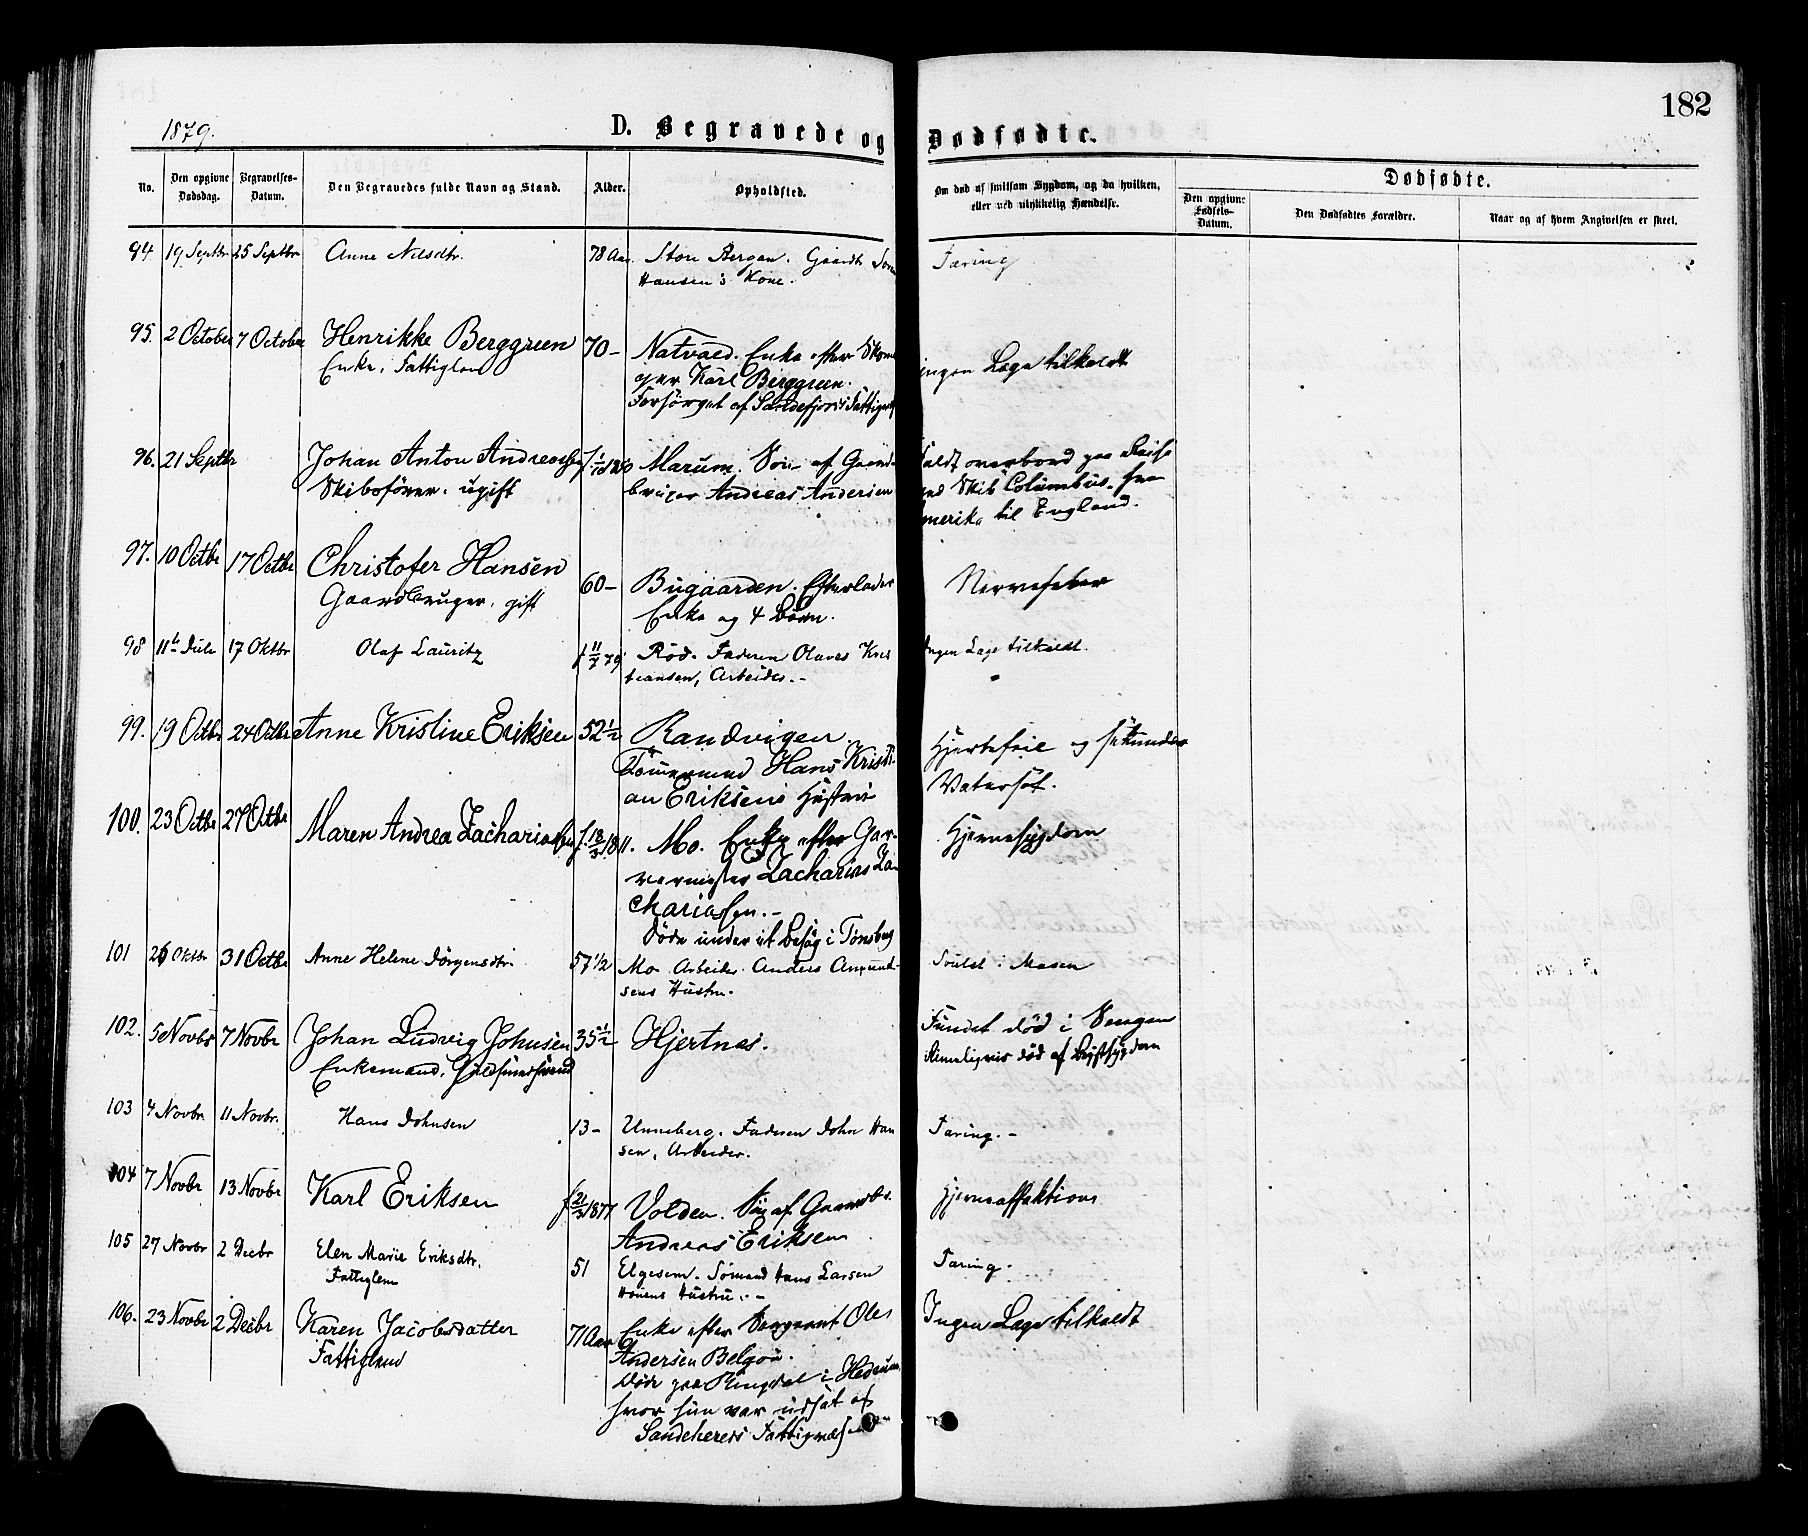 182
1879.
D. Begravede og Dødfødte.
No.
Den opgivne Dødsdag.
Begravelses-Datum.
Den Begravedes fulde Navn og Stand.
Alder.
Opholdsted.
Om død af smitsom Sygdom, og da hvilken, eller ved ulykkelig Hændelse.
Dødfødte.
Den opgivne Fødsels-Datum.
Den Dødfødtes Forældre.
Naar og af hvem Angivelsen er skeet.
94 19 Septbr 25 Septbr Anne Nilsdtr. 78 Aar Store Bergan. Gaardb.
Hansen's Kone.
Tæring
95. 2 October 7 October Henrikke Berggreen 70 – Natvald. Enke efter
Enke, Fattiglem
Karl Berggreen.
Forsörget af Sandefjords
ingen Læge tilkaldt
96. 21 Septbr Johan Anton Andreassen Marum. Sön af Gaard-
Skibsförer. ugift
bruger Andreas Andersen
Faldt overbord paa Reise
med Skib Columbus fra
Amerika til England.
97. 10 Octbr 17 Octbr Christofer Hansen 60 – Bugaarden. Efterlader
Gaardbruger. gift
Enke og 4 Börn.
Nervefeber
98 11te Juli 17 Oktbr Olaf Lauritz f 11/7 79 Röd. Faderen Olaves Kris
tiansen, Arbeider. –
Ingen Læge tilkaldt.
99. 19 Octbr 24 Octbr Anne Kristine Eriksen 52 1/2 Randvigen.
Tömermand Hans Kristi-
an Eriksens Hustru
Hjertefeil og sekundær
Vatersot.
100. 23 Octbr 27 Octbr Maren Andrea Zachariassen f. 18/3 1811. Mo. Enke efter Gar-
vermester Zacharias Za
chariassen. –
Döde under et Besög i Tönsberg
Hjernesygdom
101 26 Oktbr 31 Octbr Anne Helene Jörgensdtr. 57 1/2 Mo Arbeider Anders Amund-
sens Hustru.
Svulst i Maven
102. 5 Novbr 7 Novbr Johan Ludvig Johnsen 35 1/2 Hjertnes.
Enkemand.
Fundet död i Sengen
Rimeligvis död af Brystsygdom
103 4 Novbr 11 Novbr. Hans Johnsen 13 – Unneberg. Faderen John Han
sen, Arbeider.
Tæring. –
104 7 Novbr 13 Novbr Karl Eriksen f 21/3 1877 Volden. Sön af Gaardbr.
Andreas Eriksen
Hjerneaffektion
105 27 Novbr 2 Decbr Elen Marie Eriksdtr. 51 Elgesem. Sömand Hans Larsen
Fattiglem
Hustru. –
Tæring.
106. 23 Novbr 2 Decbr Karen Jacobsdatter 71 Aar Enke efter Sergeant Ole
Fattiglem
Andersen
Döde paa Ringdal i Hedrum,
hvor hun var udsat af
Sandeherreds Fattigvæsen
Ingen Læge tilkaldt